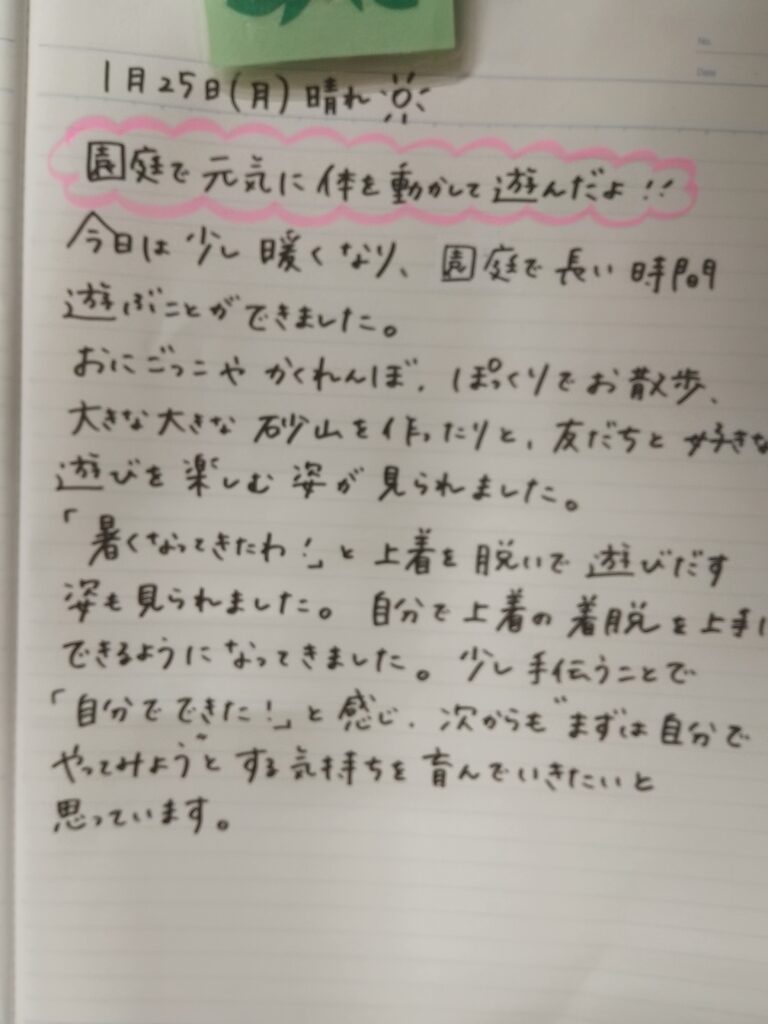 1月25日(月) 晴れ
園庭で元気に体を動かして遊んだよ!!
今日は少し暖くなり、園庭で長い時間
遊ぶことができました。
おにごっこやかくれんぼ、ぽっくりでお散歩、
大きな大きな砂山を作ったりと、友だちと好きな
遊びを楽しむ姿が見られました。
「暑くなってきたわ!」と上着を脱いで遊びだす
姿も見られました。自分で上着の着脱を上手に
できるようになってきました。少し手伝うことで
「自分でできた!」と感じ、次からも“まずは自分で
やってみよう”とする気持ちを育んでいきたいと
思っています。
No.
Date